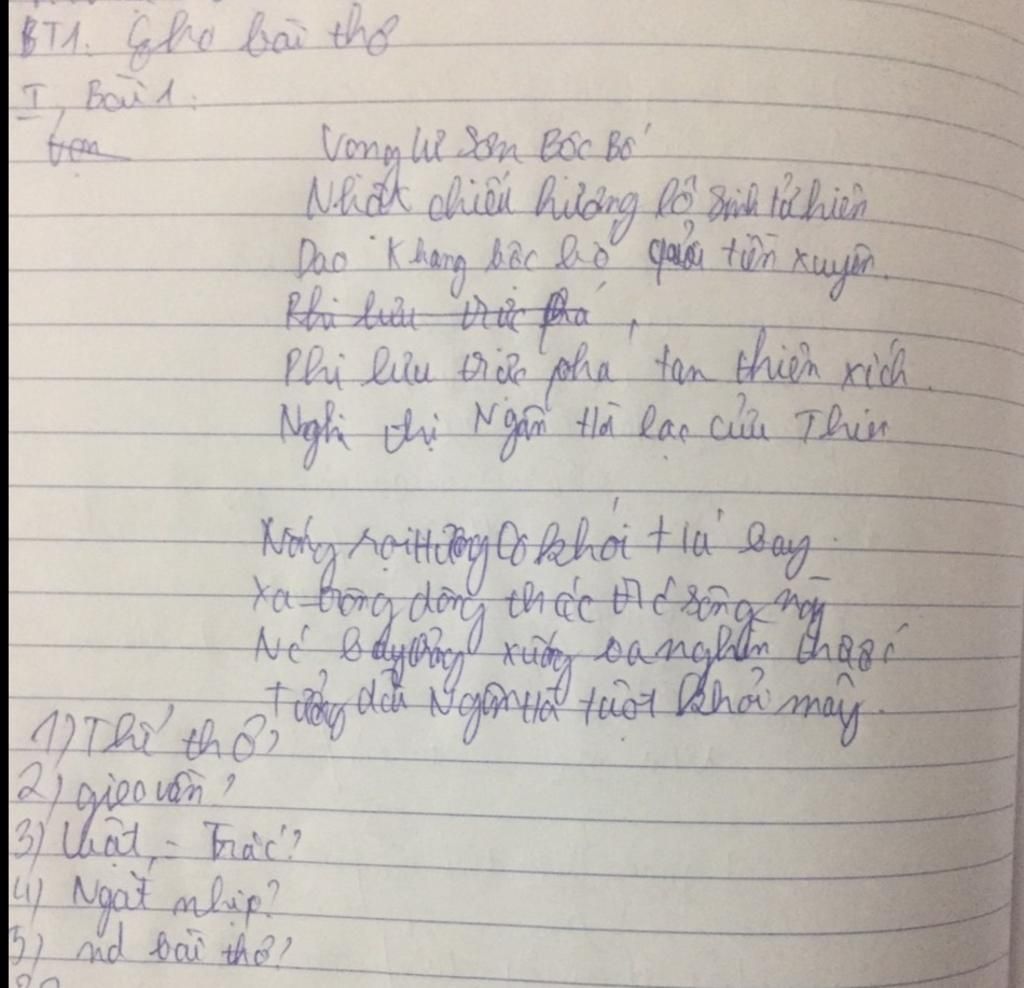 BT1. Cho bài thơ
I, Bài 1:
Vọng Lư Sơn Bộc Bố
Nhật chiếu hương lô sinh tử hiên
Dao Khang bộc bố quải tiền xuyên.
Phi lưu trực phá,
Phi lưu trực phá tam thiên xích.
Nghi thị Ngân Hà lạc cửu Thiên
Nắng rọi Hương Lô khói tía bay.
Xa trông dòng thác trước sông này
Nước bay thẳng xuống ba nghìn thước
Tưởng dải Ngân Hà tuột khỏi mây.
1) Thể thơ?
2) gieo vần?
3) Luật, - Trắc?
4) Ngắt nhịp?
5) nd bài thơ?